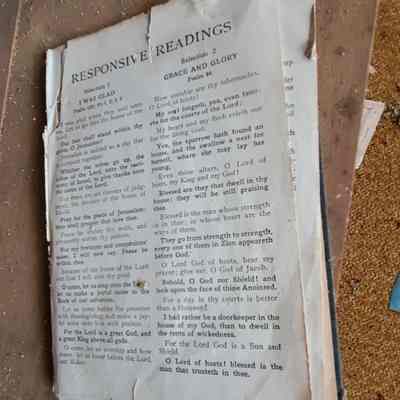 RESPONSIVE READINGS
Selection 1
I WAS GLAD
I was glad when they said unto
me, Let us go into the house of the
Lord.
Our feet shall stand within thy
O Jerusalem!
Jerusalem is builded as a city that
together:
Whither the tribes go up, the
tribes of the Lord, unto the
of Israel, to give thanks unto
the name of the Lord.
For there are set thrones of judg-
ment, the thrones of the house of
David.
Pray for the peace of Jerusalem:
they shall prosper that love thee.
Peace be within thy walls, and
prosperity within thy palaces.
For my brethren and companions'
sakes, I will now say, Peace be
within thee.
Because of the house of the Lord
our God I will seek thy good.
O come, let us sing unto the Lord:
let us make a joyful noise to the
Rock of our salvation.
Let us come before his presence
with thanksgiving, and make a joy-
ful noise unto him with psalms.
For the Lord is a great God, and
a great King above all gods.
O come, let us worship and bow
down: let us kneel before the Lord
our Maker.
Selection 2
GRACE AND GLORY
Psalm 84
How amiable are thy tabernacles,
O Lord of hosts!
My soul longeth, yea, even faint-
eth for the courts of the Lord;
My heart and my flesh crieth out
for the living God.
Yea, the sparrow hath found an
house, and the swallow a nest for
herself, where she may lay her
young,
Even thine altars, O Lord of
hosts, my King and my God!
Blessed are they that dwell in thy
house; they will be still praising
thee.
Blessed is the man whose strength
is in thee; in whose heart are the
ways of them.
They go from strength to strength,
every one of them in Zion appeareth
before God.
O Lord God of hosts, hear my
prayer; give ear, O God of Jacob.
Behold, O God our Shield! and
look upon the face of thine Anointed.
For a day in thy courts is better
than a thousand.
I had rather be a doorkeeper in the
house of my God, than to dwell in
the tents of wickedness.
For the Lord God is a Sun and
Shield.
O Lord of hosts! blessed is the
man that trusteth in thee.